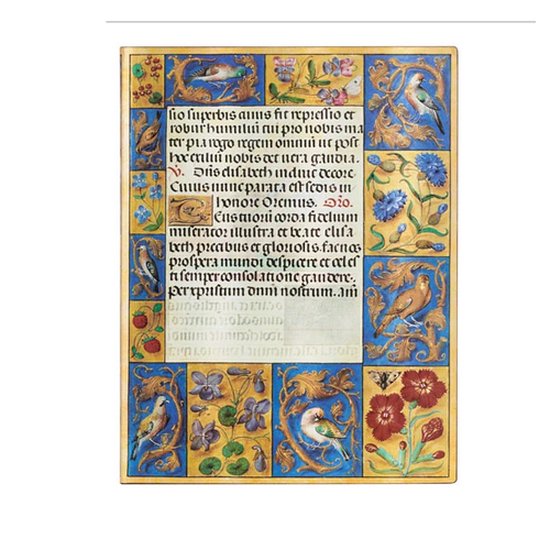 sio superbis cuius fit repressio et
robur humiliū cui pro nobis ma
ter pia rogo regem omniū ut post
hoc exiliū nobis det vera gaudia.
V. Dn̄s elisabeth induit decore.
Cuius nunc parata est sedis in
honore Oremus. Oro.
Eus tuorū corda fidelium
miserator illustra et beate elisa
beth precibus et gloriosis fac nos
prospera mundi despicere et celes
ti semper consolatione gaudere.
per xp̄istum dn̄m nostrum. am̄